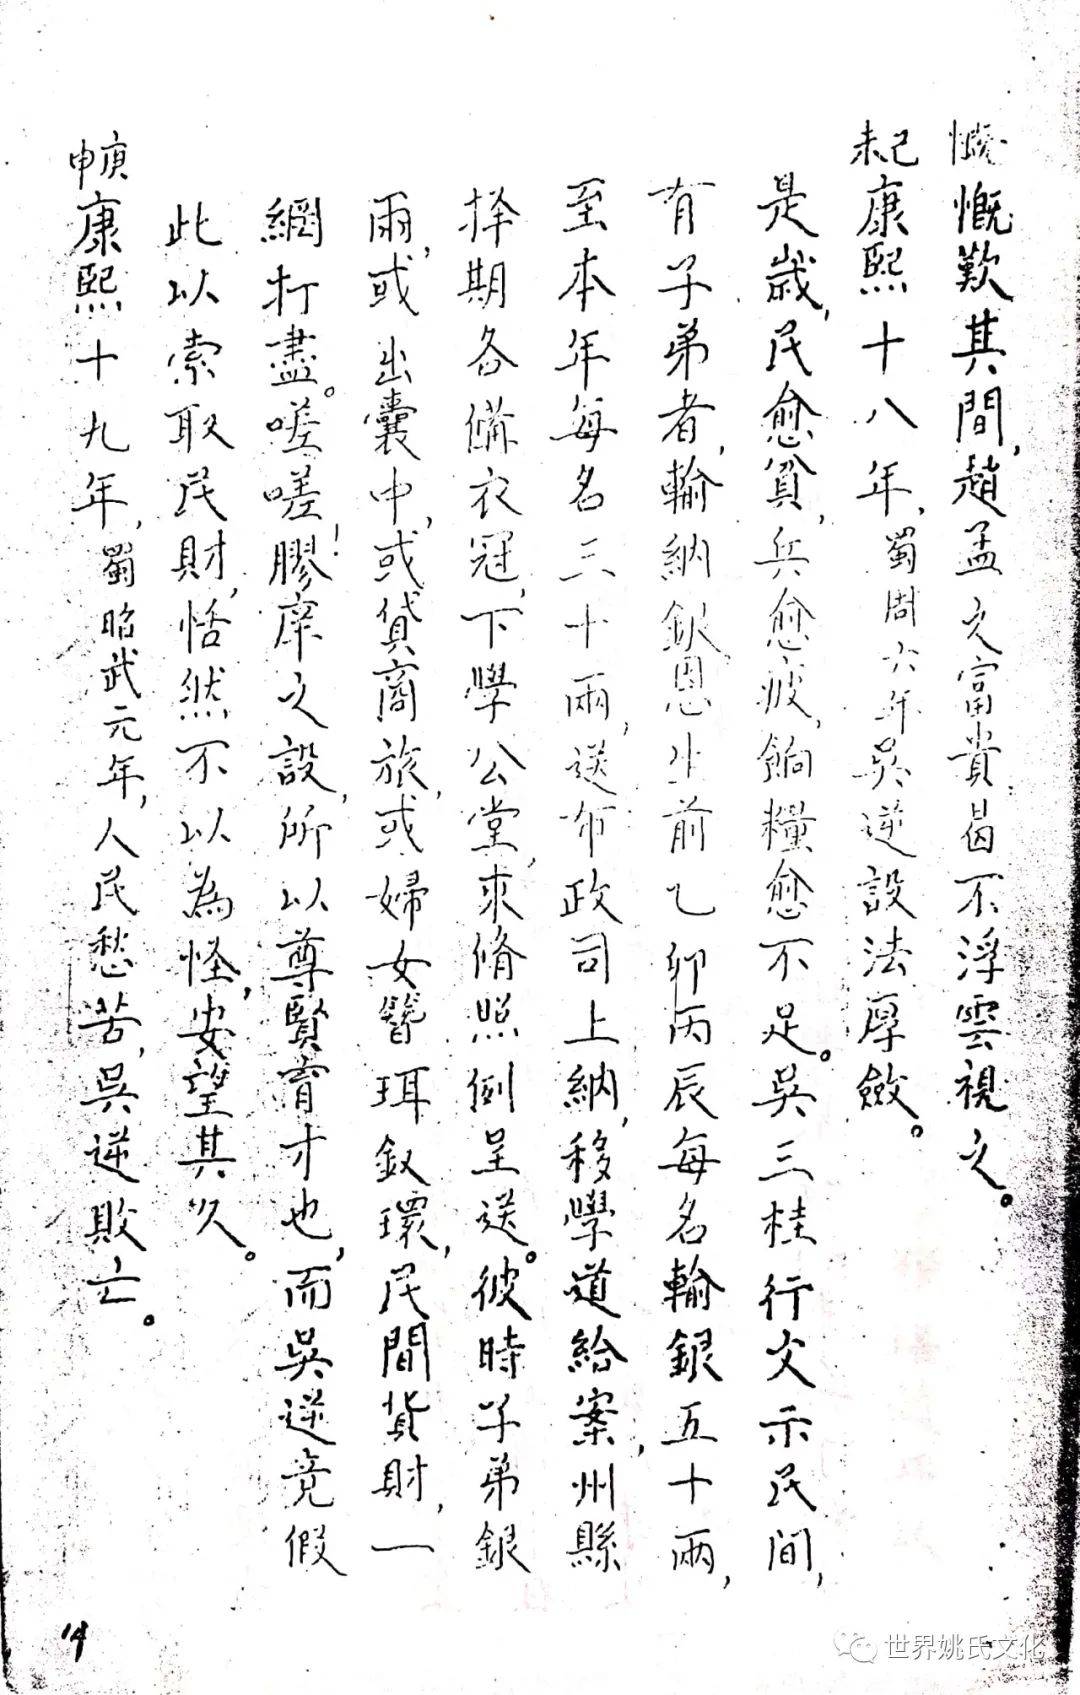 慨歎其間，趙孟之富貴曷不浮雲視之。
己未康熙十八年，蜀周六年吳逆設法厚斂。
是歲，民愈貧，兵愈疲，餉糧愈不足。吳三桂行文示民间，
有子弟者，輸納銀恩生前乙卯丙辰每名輸銀五十兩，
至本年每名三十兩，送布政司上納，移學道給案，州縣
择期各備衣冠，下學公堂，求脩照例呈送。彼時子弟銀
兩，或出囊中，或貸商旅，或婦女簪珥釵環，民間貨財，一
網打盡。嗟嗟！膠庠之設，所以尊賢育才也，而吳逆竟假
此以索取民財，恬然不以為怪，安望其久。
庚申康熙十九年，蜀昭武元年，人民愁苦，吳逆敗亡。
14
世界姚氏文化